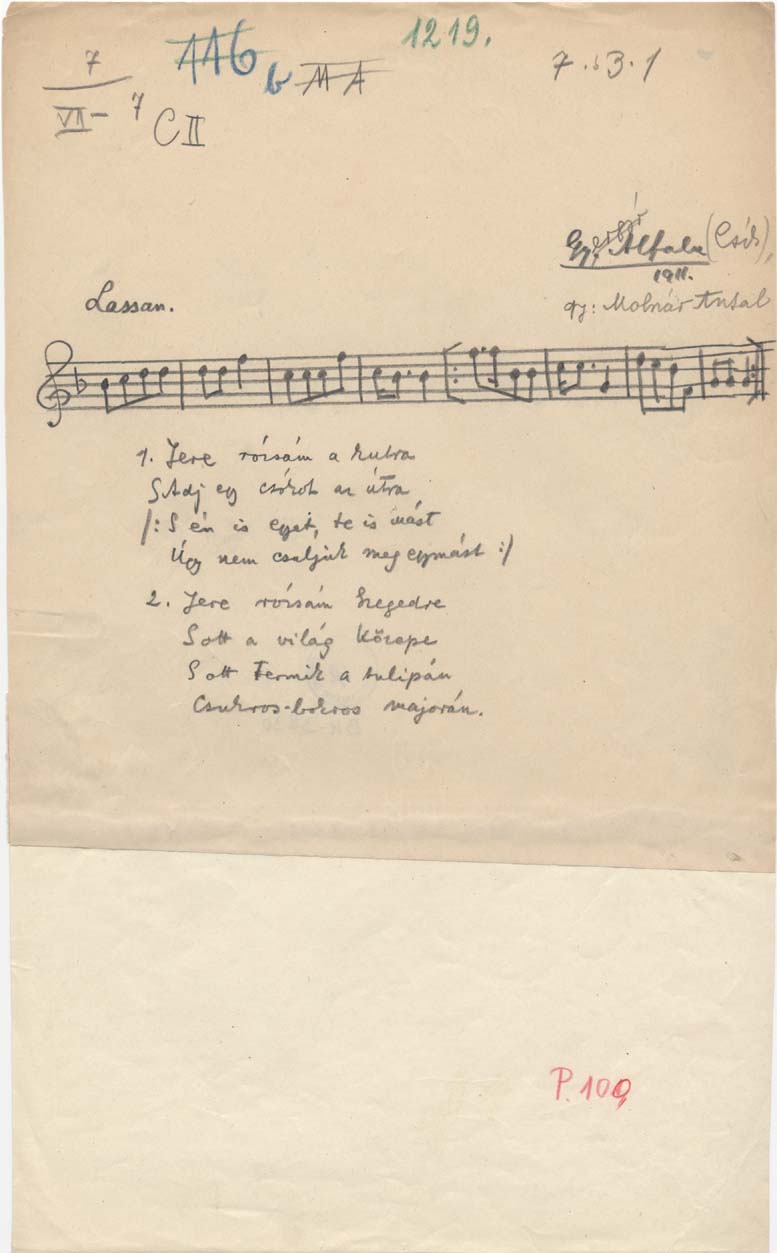 1219.
7
VII-7
CII
AAb
b
MA
7.b3.1
Gy. Alfalu (Csík),
1911.
gy: Molnár Antal
Lassan.
1. Jere rózsám a kutra
S Adj egy csókot az útra
/: S én is egyet, te is mást
Úgy nem csaljuk meg egymást :/
2. Jere rózsám Szegedre
S ott a világ közepe
S ott termik a tulipán
Csukros-bokros majorán.
P. 100